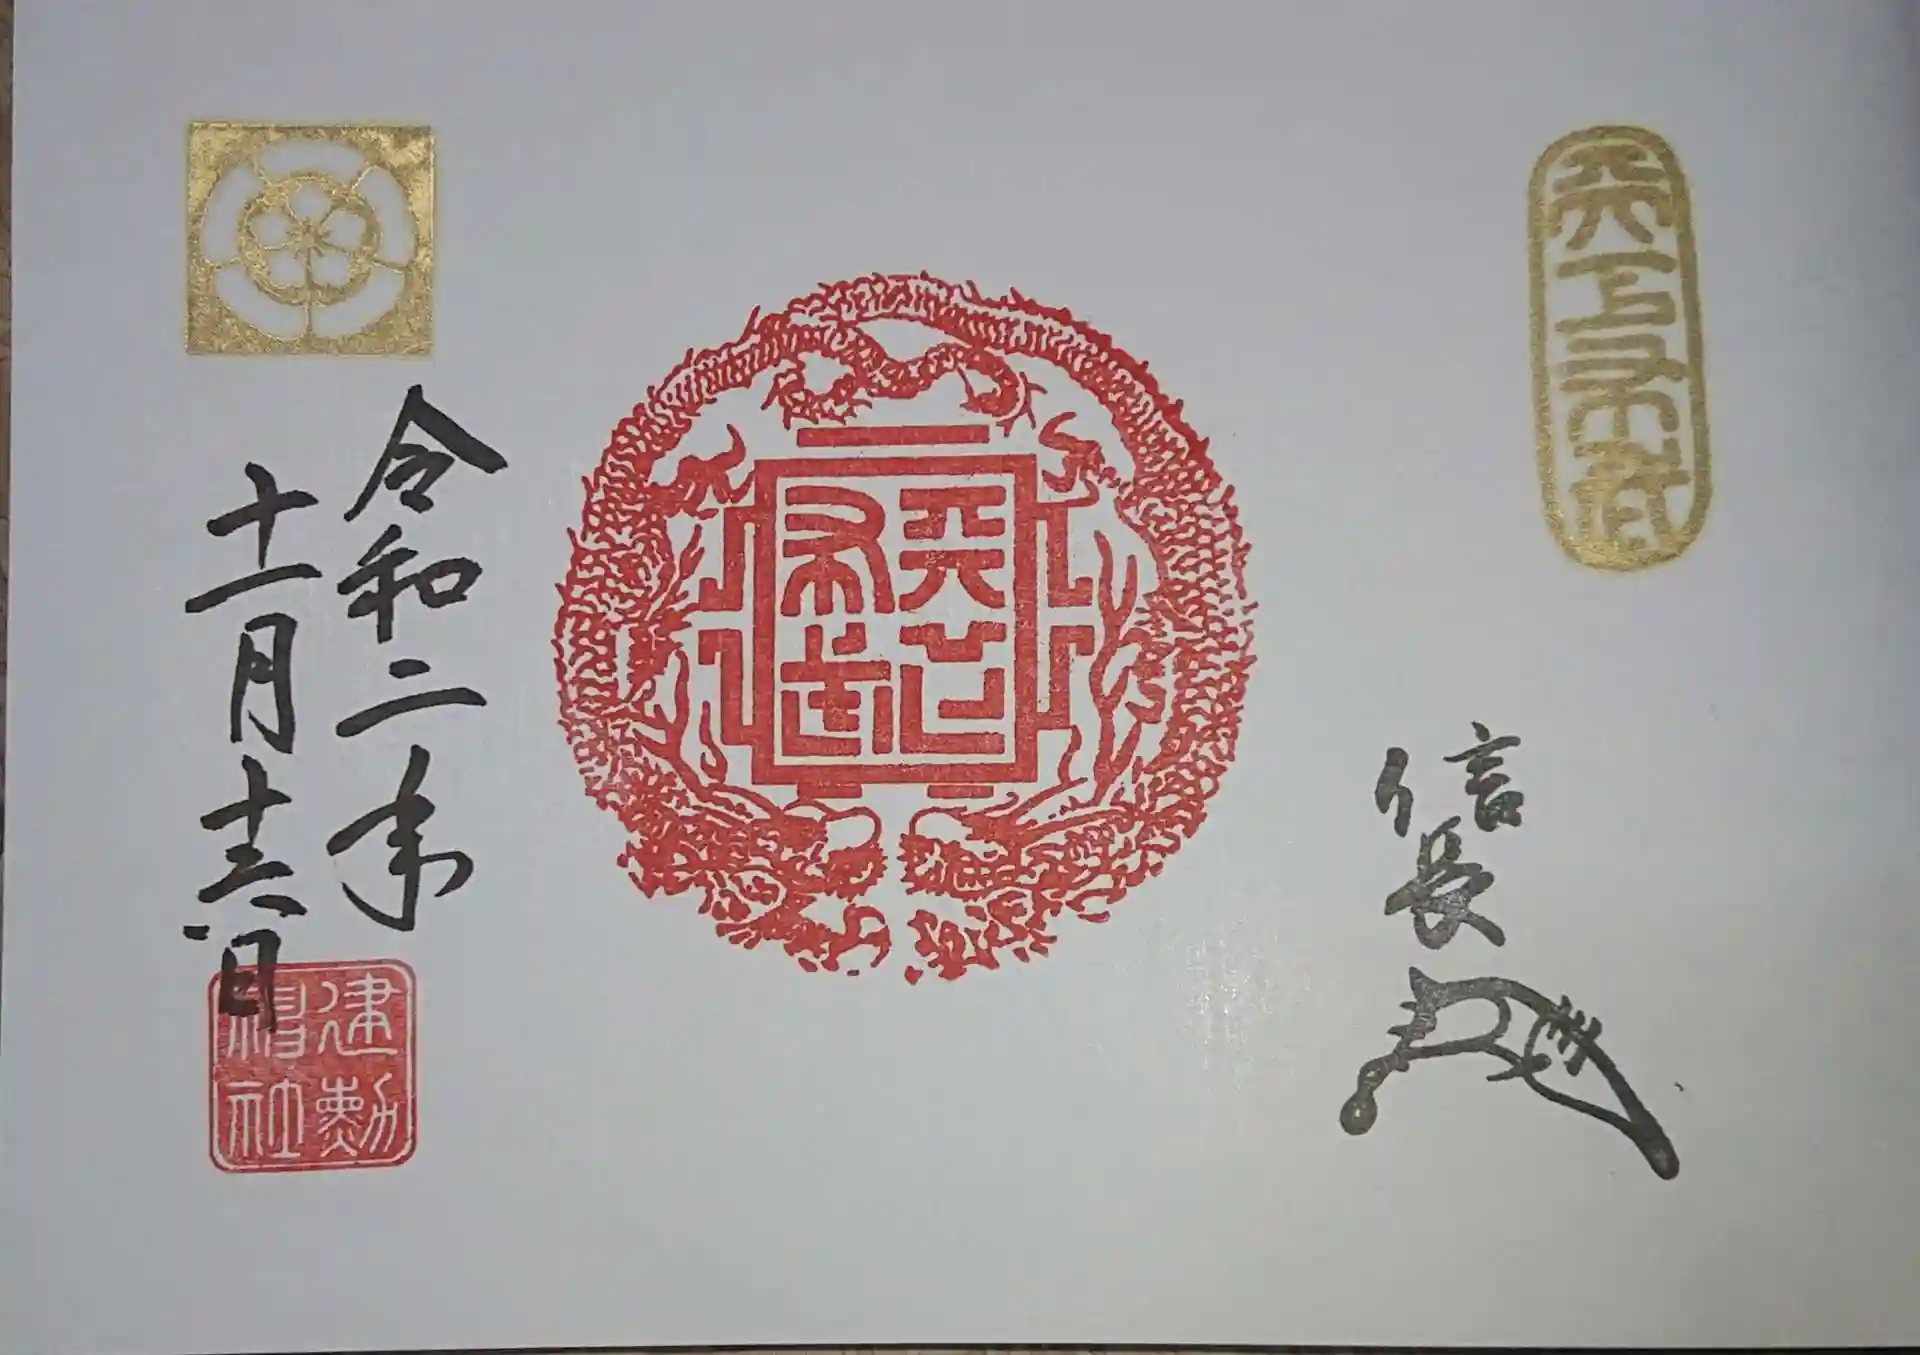 天下布武
信長
天下布武
令和二年
十一月十六日
建勲
神社